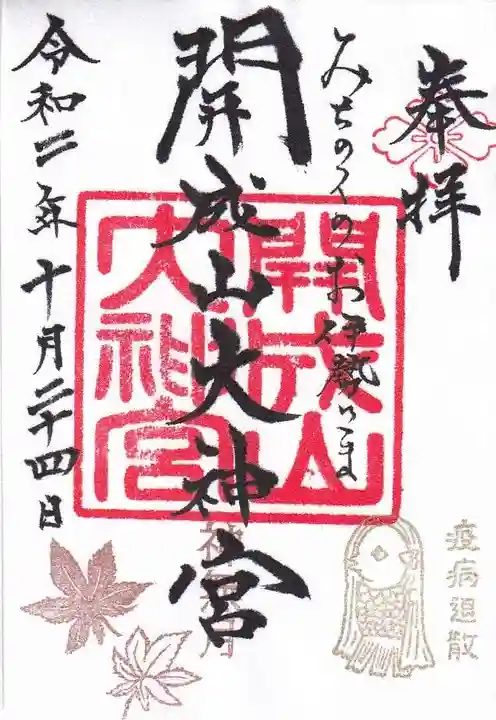 奉拝
みちのくのお伊勢さま
開成山大神宮
開成山
大神宮
令和二年十月二十四日
疫病退散